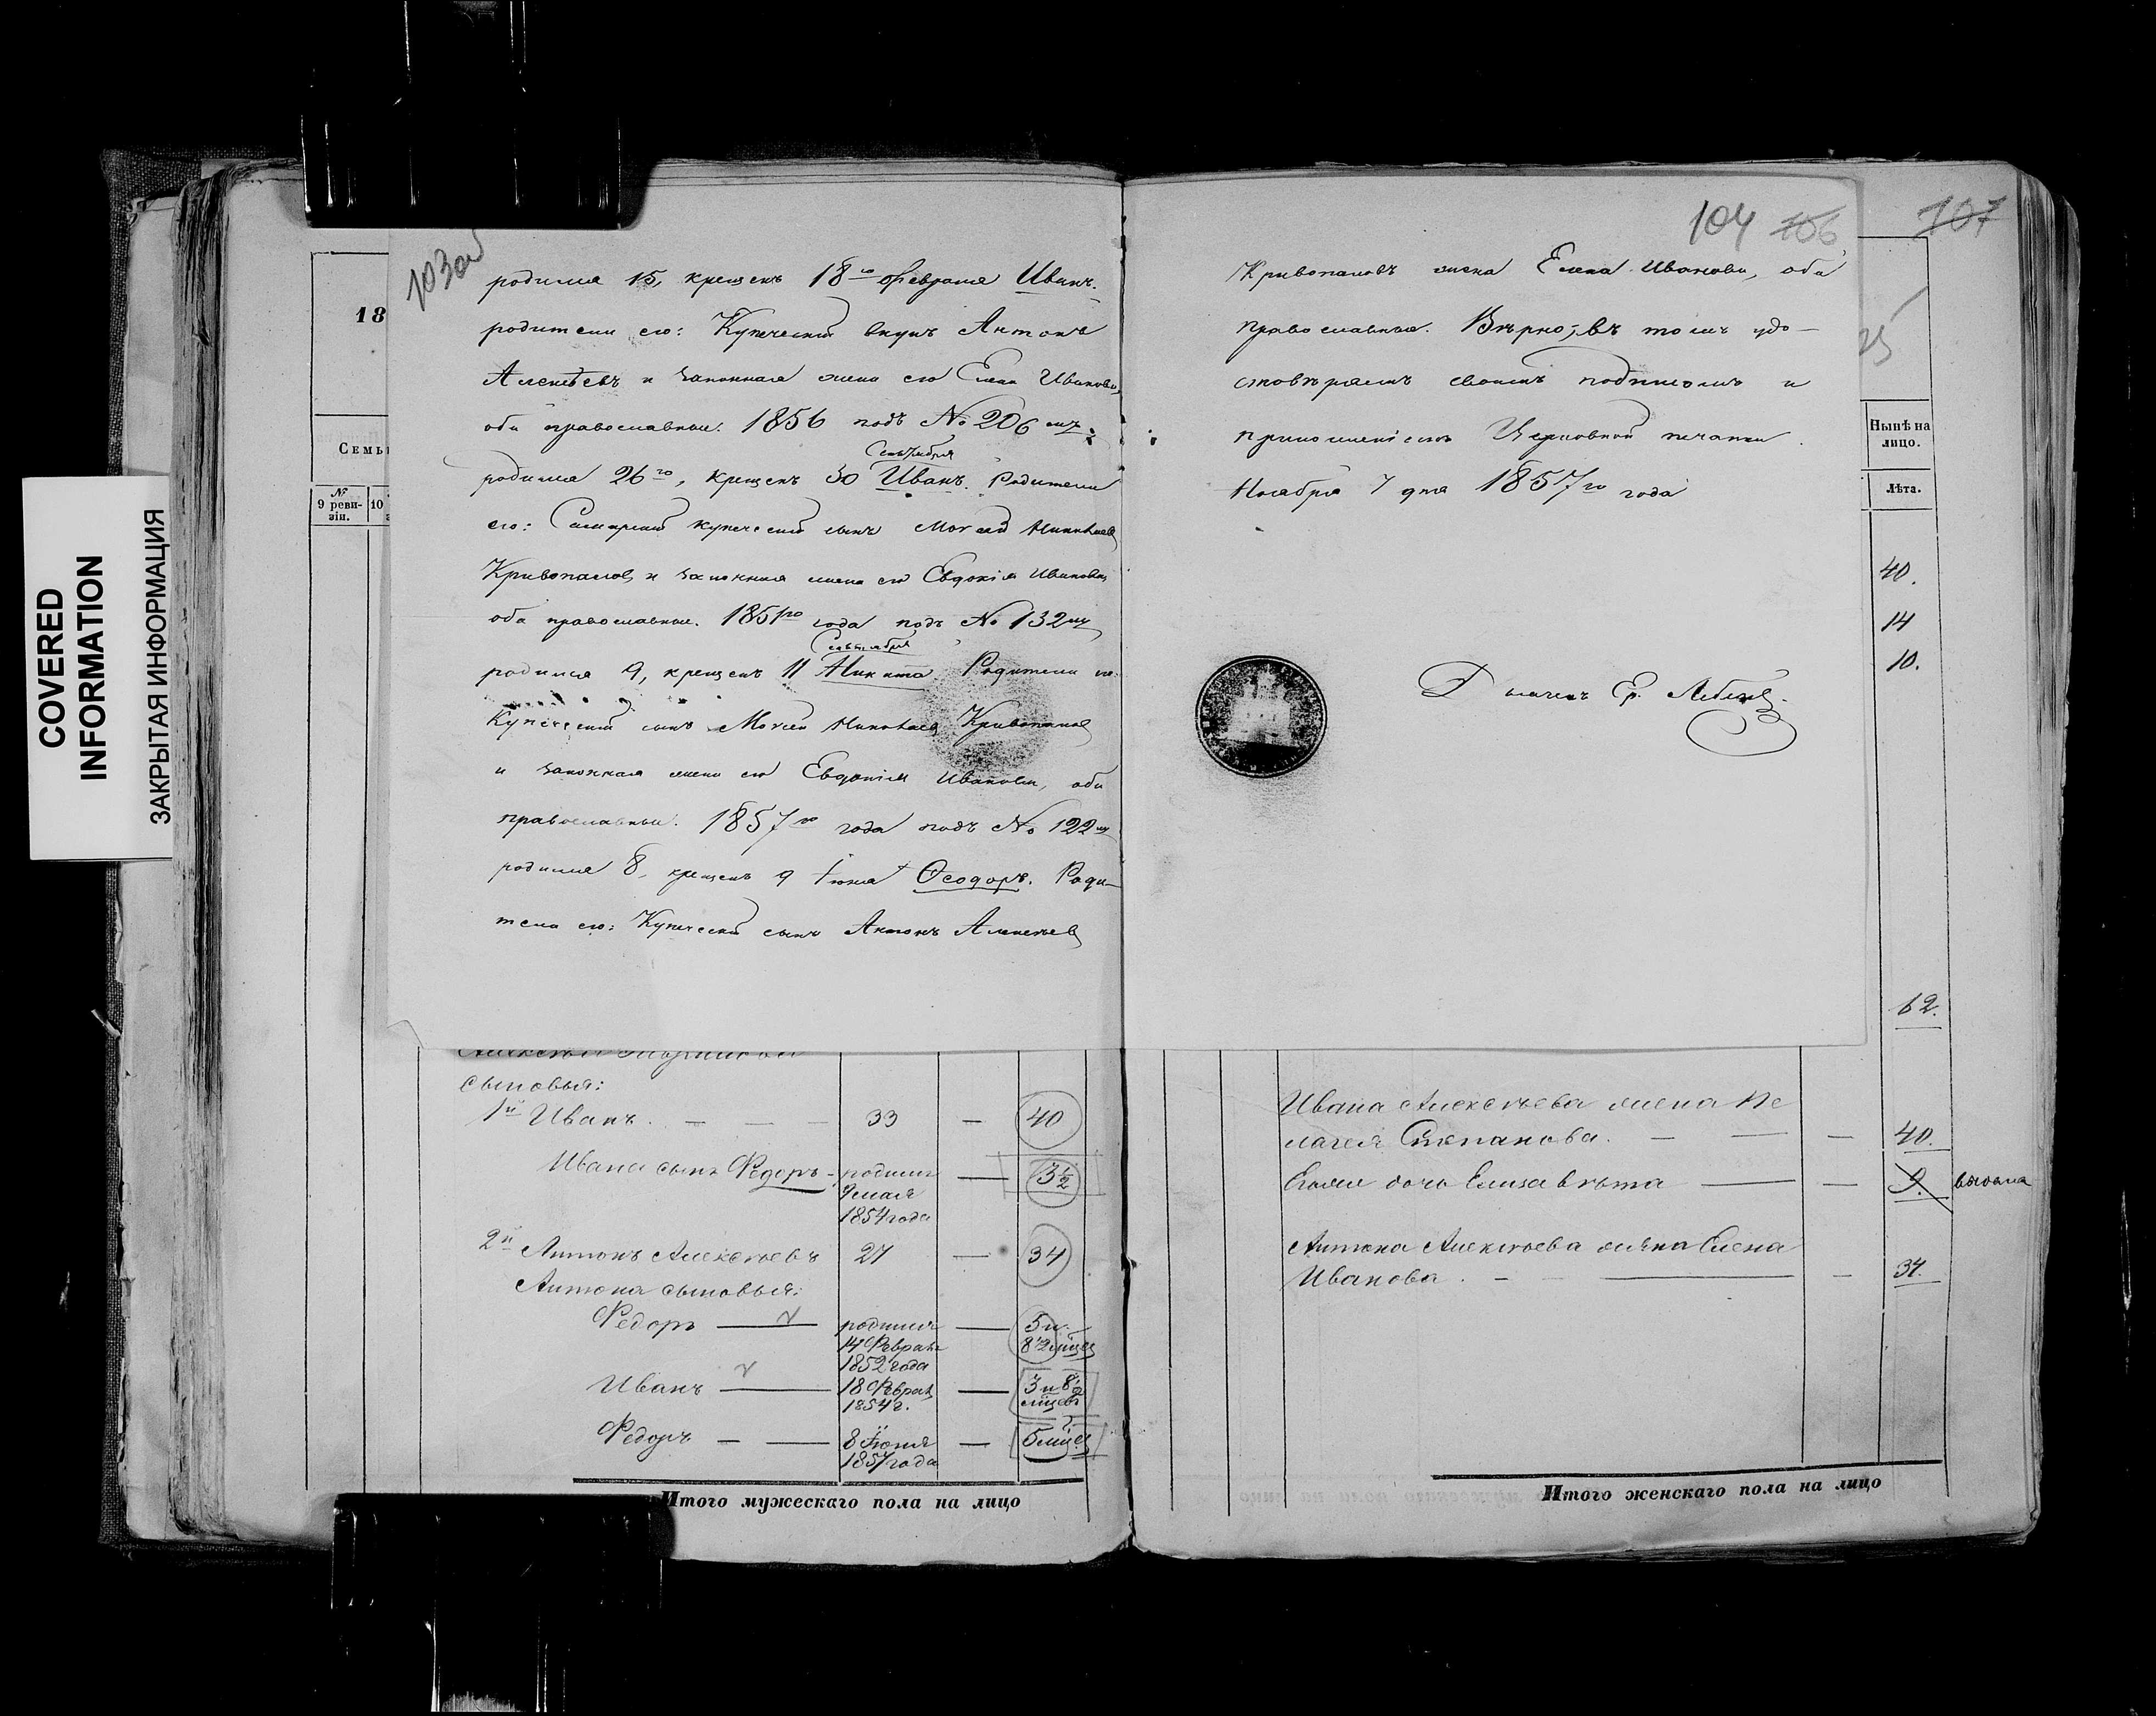 COVERED
INFORMATION
ЗАКРЫТАЯ ИНФОРМАЦИЯ
18
Семь
№
9 реви-
зіи.
10
103об
родился 15, крещенъ 18го Февраля Иванъ.
родители его: Купеческій внукъ Антонъ
Алексѣевъ и законная жена его Елена Иванова,
оба православные. 1856 подъ № 206мъ
Сентября
родился 26го, крещенъ 30 Иванъ. Родители
его: Самарскій купеческій сынъ Моисей
и законная жена его Евдокія Иванова
оба православные. года подъ № 132мъ
Сентября
родился 9, крещенъ 11 Никита. Родители его
Купеческій сынъ Моисей
и законная жена его Евдокія Иванова, оба
православные. 1857го года подъ № 122мъ
родился 8, крещенъ 9 Іюня Ѳеодоръ. Роди-
тели его: Купеческій сынъ Антонъ Алексѣевъ
104 106
107
жена Елена Иванова, оба
православные. Вѣрно, въ томъ удо-
стовѣряемъ своимъ подписомъ и
приложеніемъ Церковной печати.
Ноября 7 дня 1857го года
Ер.
Нынѣ на
лицо.
Лѣта.
40.
14
10.
62.
сыновья:
1й Иванъ. — — — 33 — 40
Ивана сынъ Федоръ - родился — 3 1/2
9 мая
1854 года
2й Антонъ Алексѣевъ 27 — 34
Антона сыновья:
Федоръ — родился — 5 и
14 Февраля 8 1/2 мѣцъ
1852 года
Иванъ — 18 Февраля — 3 и 8 1/2
1854 г. мѣцевъ
Федоръ — — 8 Іюня — 5 мѣцъ
1857 года
Итого мужескаго пола на лицо
Ивана Алексѣева жена Пе
лагея Степанова. — — — 40.
Его же дочь Елизавѣта — — 9. выдана
Антона Алексѣева жена Елена
Иванова. - — — 34.
Итого женскаго пола на лицо